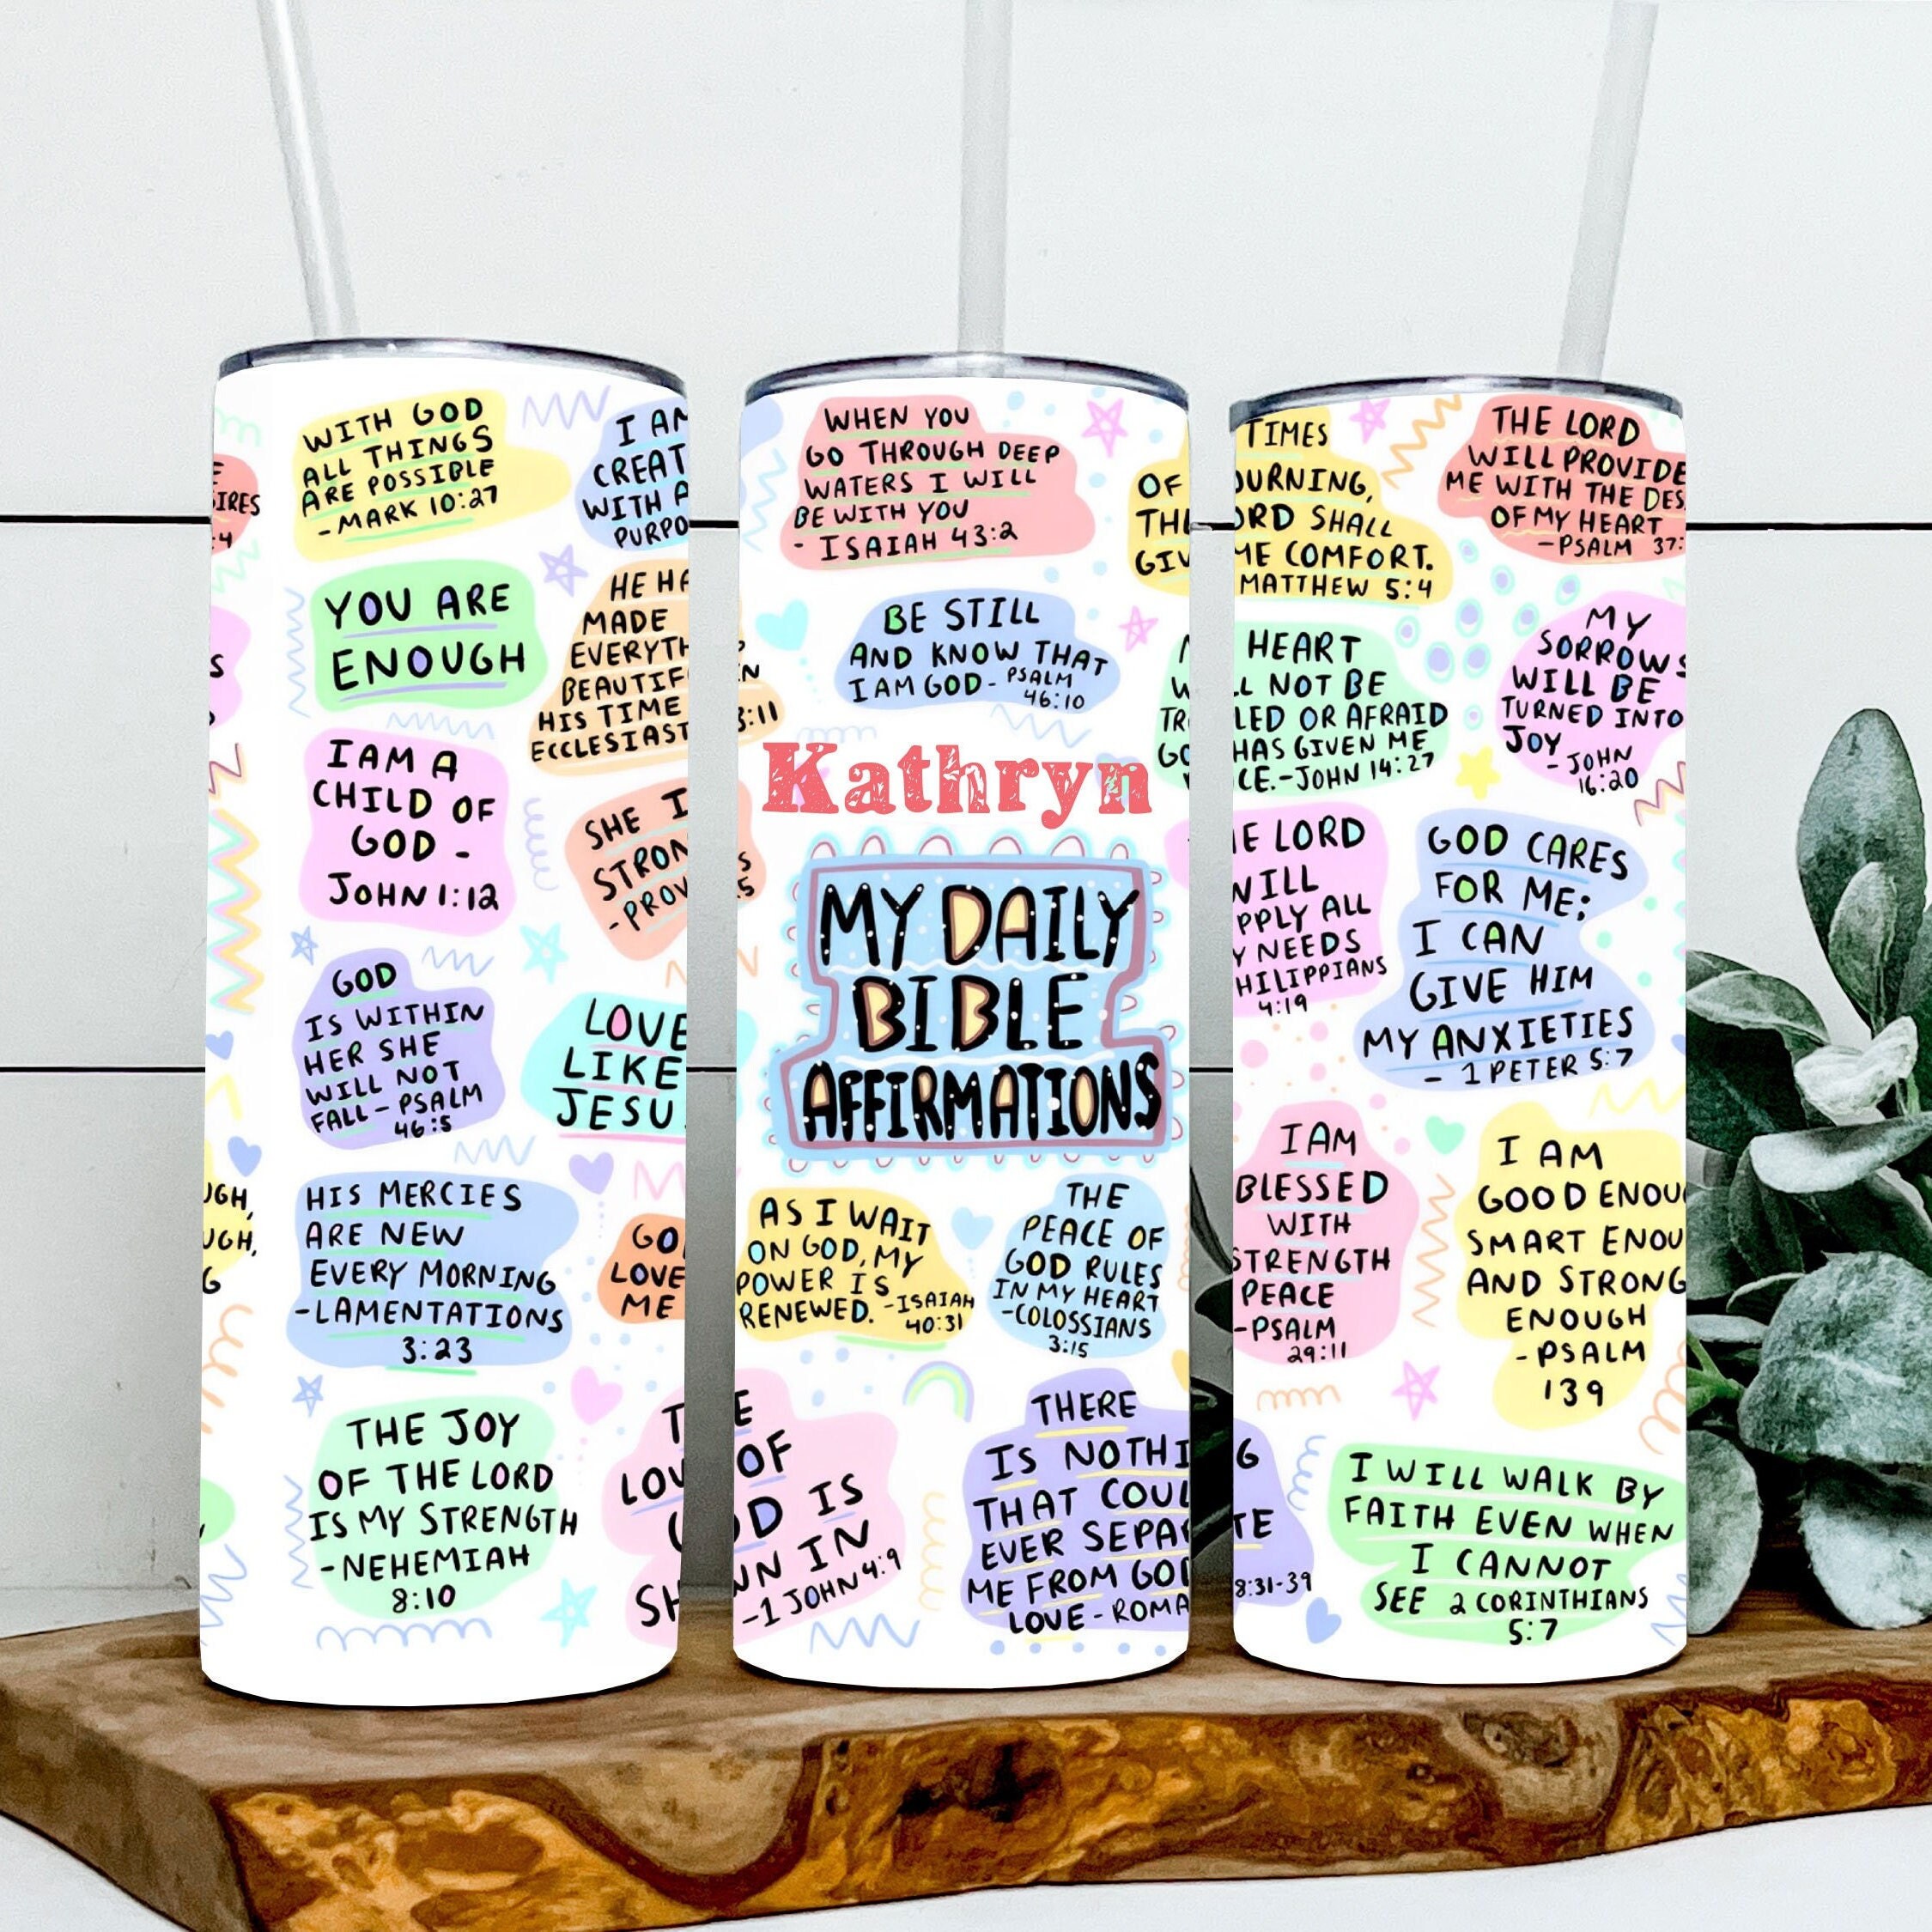 WITH GOD
ALL THINGS
ARE POSSIBLE
-MARK 10:27
I AM
WITH A
YOU ARE
ENOUGH
MADE
HIS TIME
I AM A
CHILD OF
GOD -
JOHN 1:12
SHE
GOD
IS WITHIN
HER SHE
WILL NOT
FALL - PSALM
46:5
LOVE
LIKE
HIS MERCIES
ARE NEW
EVERY MORNING
-LAMENTATIONS
3:23
LOVE
ME
THE JOY
OF THE LORD
IS MY STRENGTH
-NEHEMIAH
8:10
WHEN YOU
GO THROUGH DEEP
WATERS I WILL
BE WITH YOU
- ISAIAH 43:2
BE STILL
AND KNOW THAT
I AM GOD - PSALM
46:10
Kathryn
MY DAILY
BIBLE
AFFIRMATIONS
AS I WAIT
ON GOD, MY
POWER IS
RENEWED. -ISAIAH
40:31
THE
PEACE OF
GOD RULES
IN MY HEART
-COLOSSIANS
3:15
OF
IS
IN
-1 JOHN 4:9
THERE
IS
THAT
EVER
ME FROM
LOVE -
TIMES
SHALL
COMFORT.
MATTHEW 5:4
THE LORD
WILL PROVIDE
ME WITH THE
OF MY HEART
-PSALM 37:
HEART
NOT BE
OR AFRAID
HAS GIVEN ME
-JOHN 14:27
MY
SORROWS
WILL BE
TURNED INTO
JOY
- JOHN
16:20
LORD
WILL
ALL
NEEDS
4:19
GOD CARES
FOR ME;
I CAN
GIVE HIM
MY ANXIETIES
- 1 PETER 5:7
I AM
BLESSED
WITH
STRENGTH
PEACE
-PSALM
29:11
I AM
GOOD
SMART
AND STRONG
ENOUGH
-PSALM
139
8:31-39
I WILL WALK BY
FAITH EVEN WHEN
I CANNOT
SEE 2 CORINTHIANS
5:7